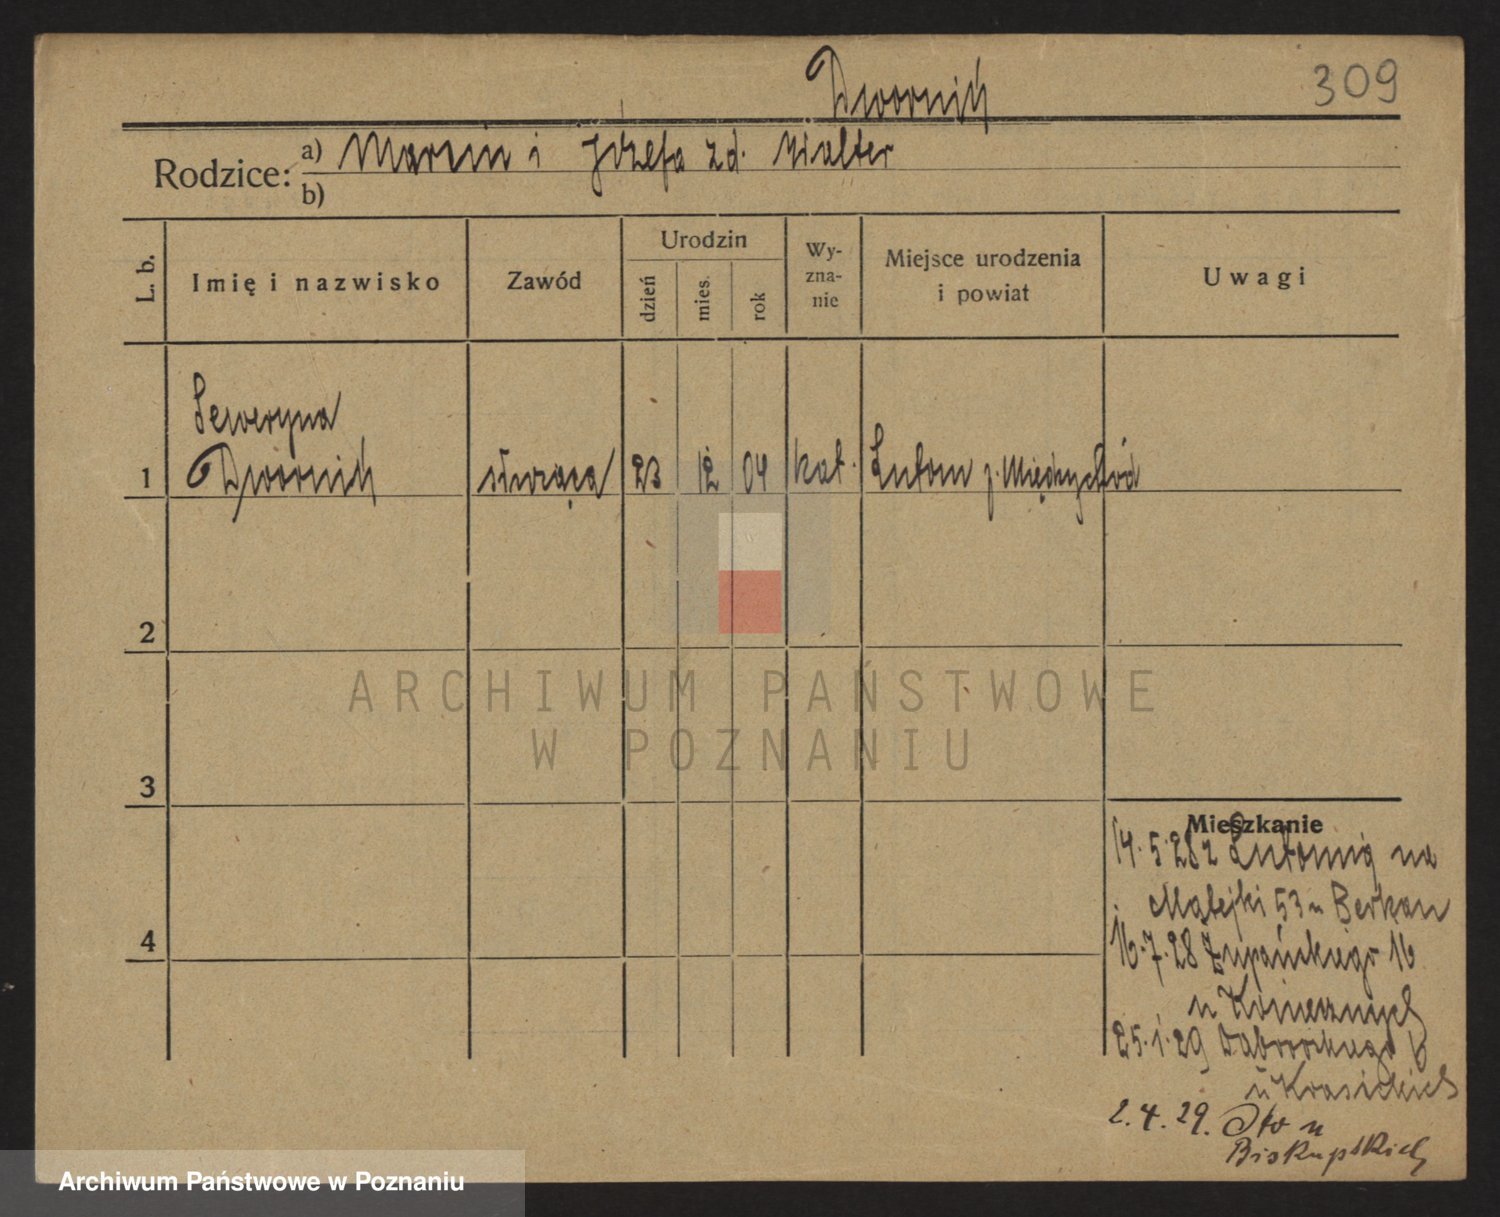 Dwornik
309
Rodzice: a) Marcin i Józefa zd. Walter
b)
L. b.
Imię i nazwisko
Zawód
Urodzin
dzień
mies.
rok
Wy-
zna-
nie
Miejsce urodzenia
i powiat
Uwagi
Seweryna
1 Dwornik służąca 23 12 04 kat. Lutom p. Międzychód
2
ARCHIWUM PAŃSTWOWE
W POZNANIU
3
Mieszkanie
14.5.28 z Lutomia na
Matejki 53 u Berkan
4
16.7.28 Żupańskiego 16
u Koniecznych
25.1.29 Dąbrowskiego
u Krasickich
2.4.29. u
Biskupskich
Archiwum Państwowe w Poznaniu